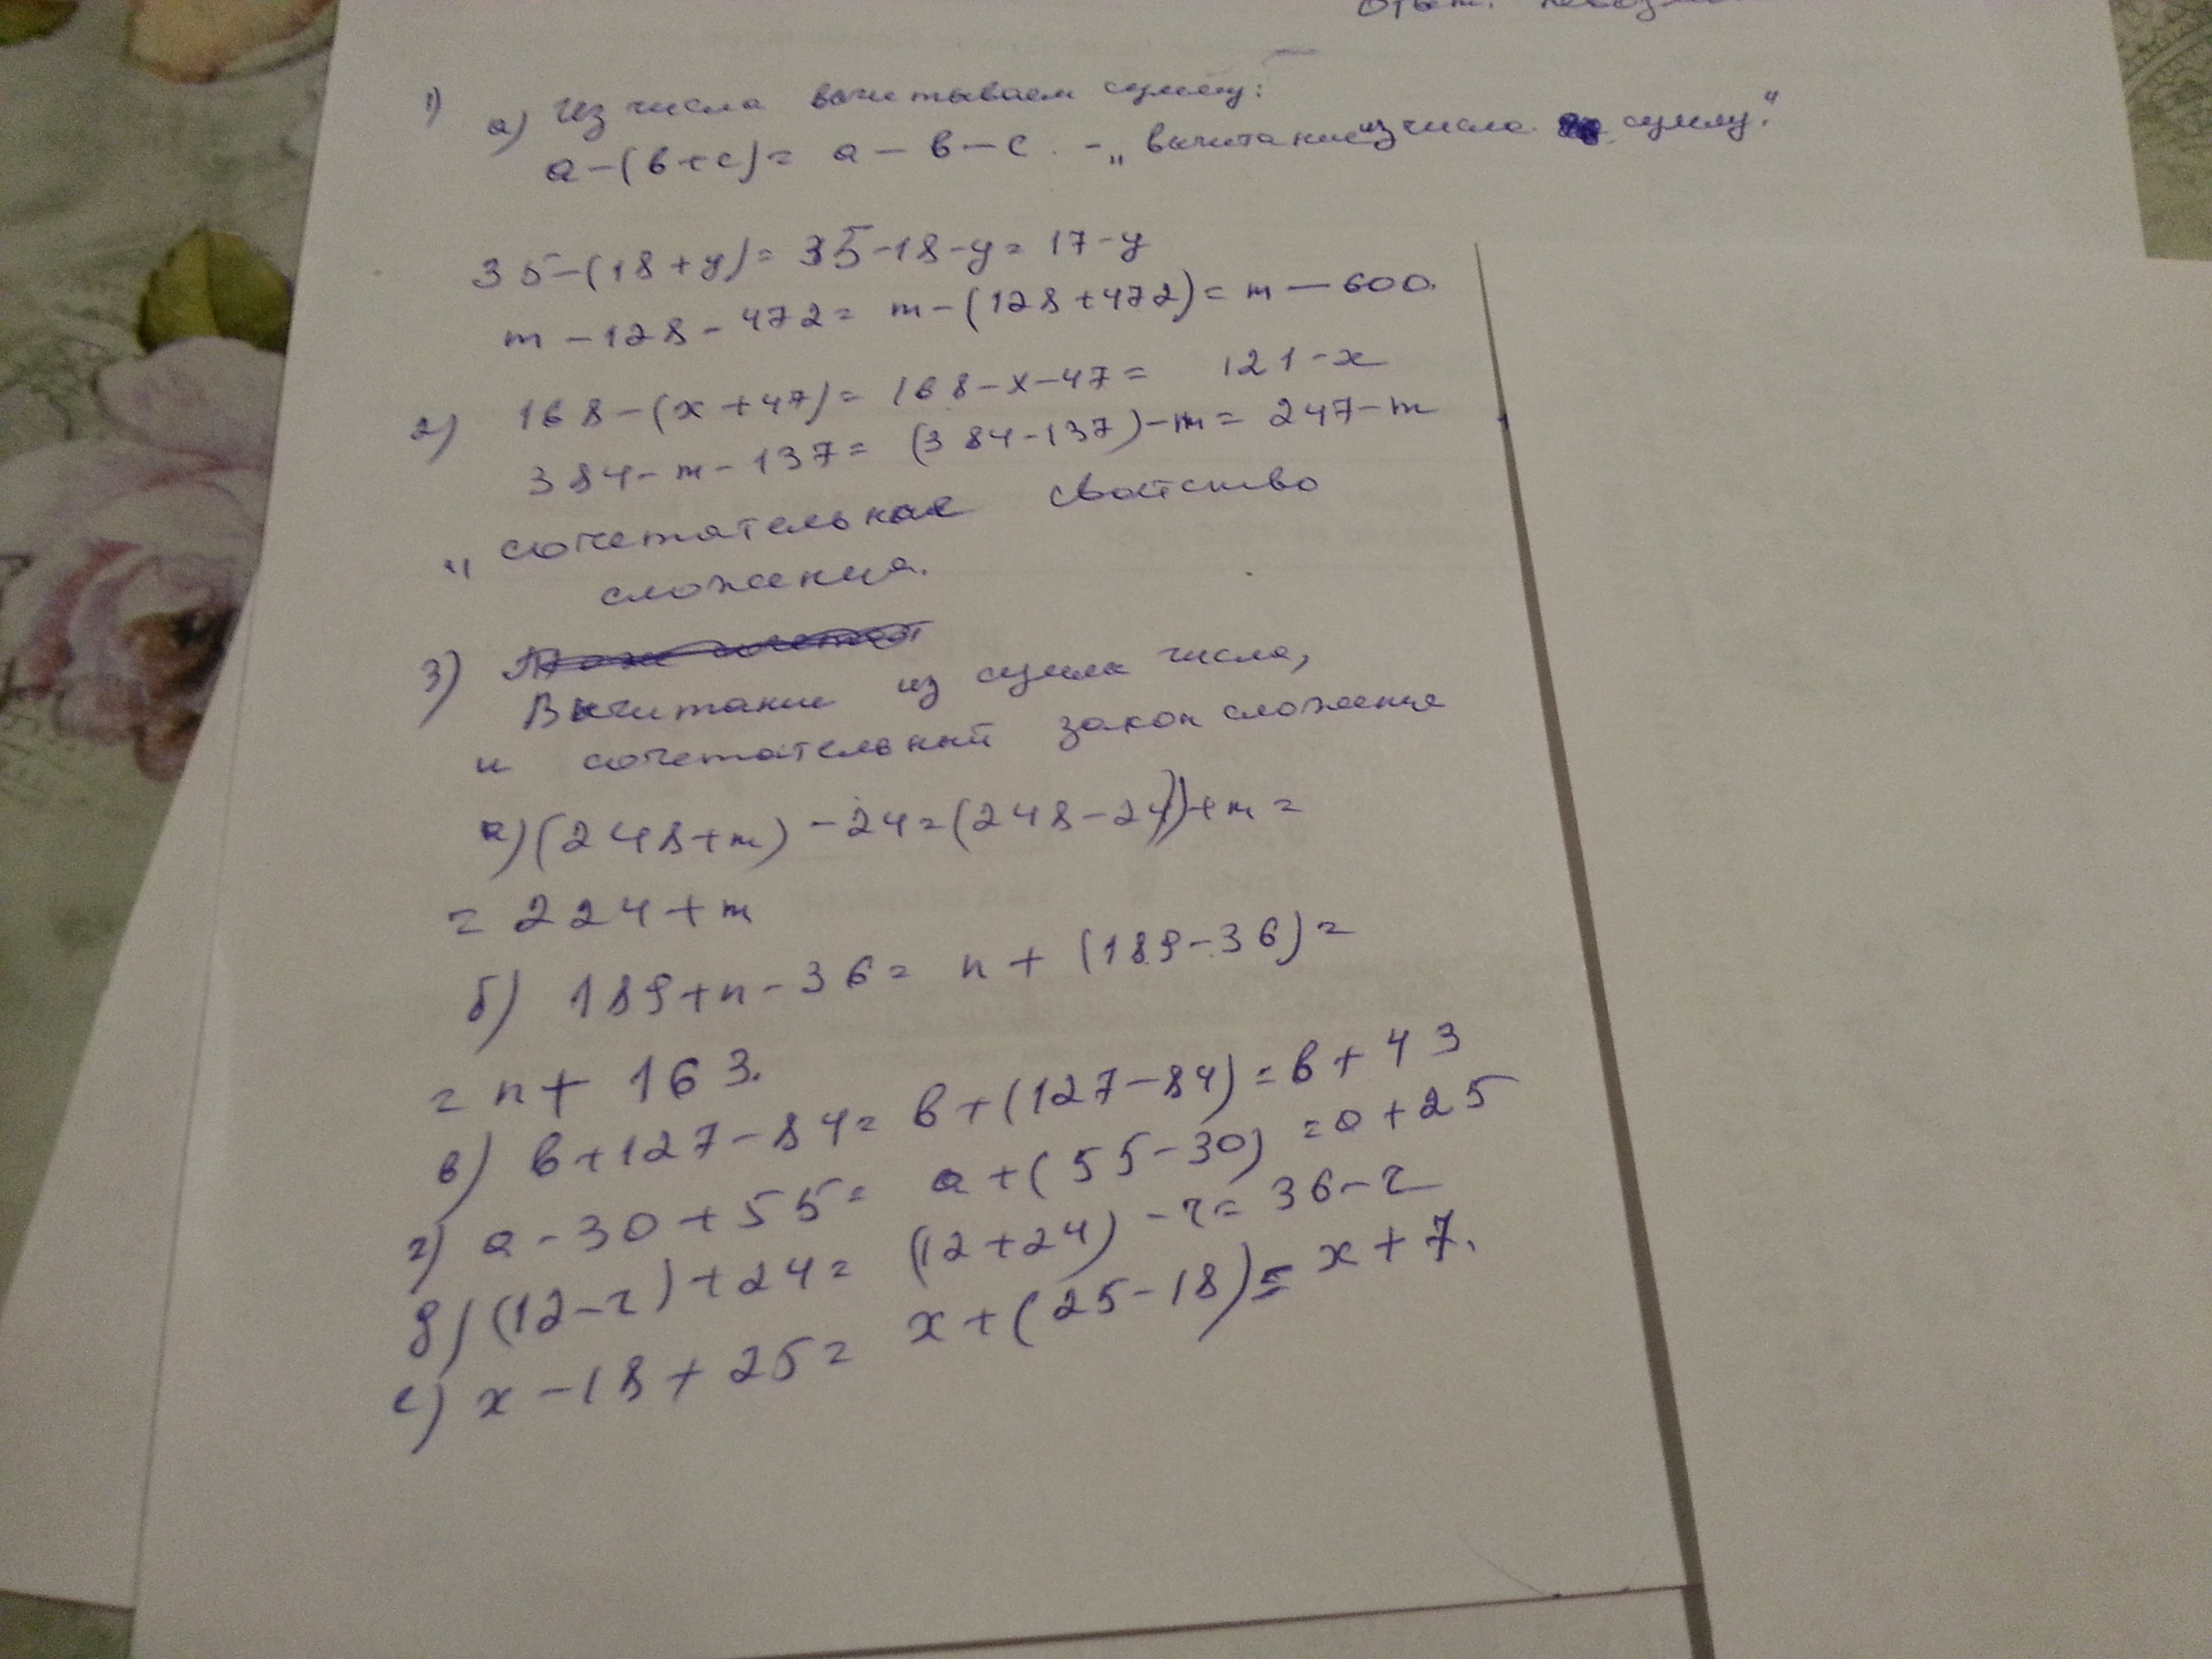 Ответ:
1) а) Из числа вычитываем сумму:
а-(в+с)= а-в-с. - „вычитание из числа сумму."
35-(18+у)= 35-18-у= 17-у
m-128-472= m-(128+472)= m-600.
2) 168-(х+47)= 168-х-47= 121-х
384-m-137= (384-137)-m= 247-m
„ сочетательное свойство
сложения.
3)
Вычитание из суммы числа,
и сочетательный закон сложения
а) (248+m)-24=(248-24)+m=
= 224+m
б) 189+n-36= n+(189-36)=
= n+ 163.
в) в+127-84= в+(127-84)=в+43
г) а-30+55= а+(55-30)=а+25
д) (12-r)+24= (12+24)-r= 36-r
е) х-18+25= х+(25-18)= х+7.